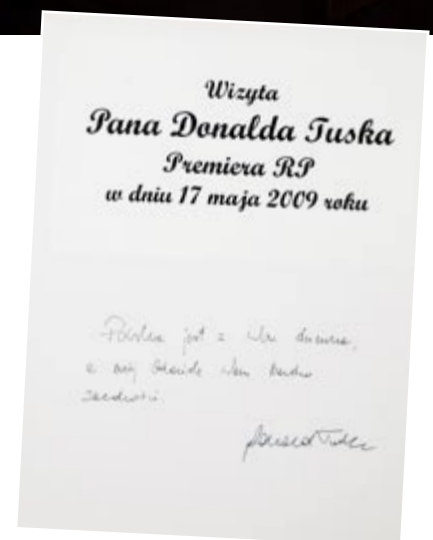 Wizyta
Pana Donalda Tuska
Premiera RP
w dniu 17 maja 2009 roku
Polska jest z Was dumna,
a mój Wam bardzo
Donald Tusk